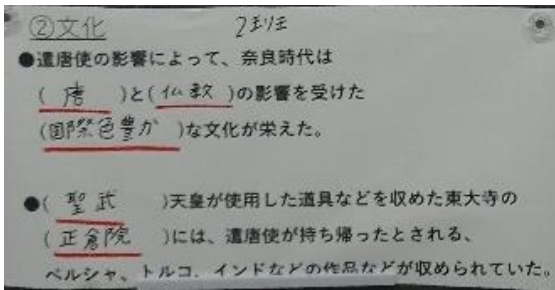 ②文化 2班
●遣唐使の影響によって、奈良時代は
(唐)と(仏教)の影響を受けた
(国際色豊か)な文化が栄えた。
●(聖武)天皇が使用した道具などを収めた東大寺の
(正倉院)には、遣唐使が持ち帰ったとされる、
ペルシャ、トルコ、インドなどの作品などが収められていた。